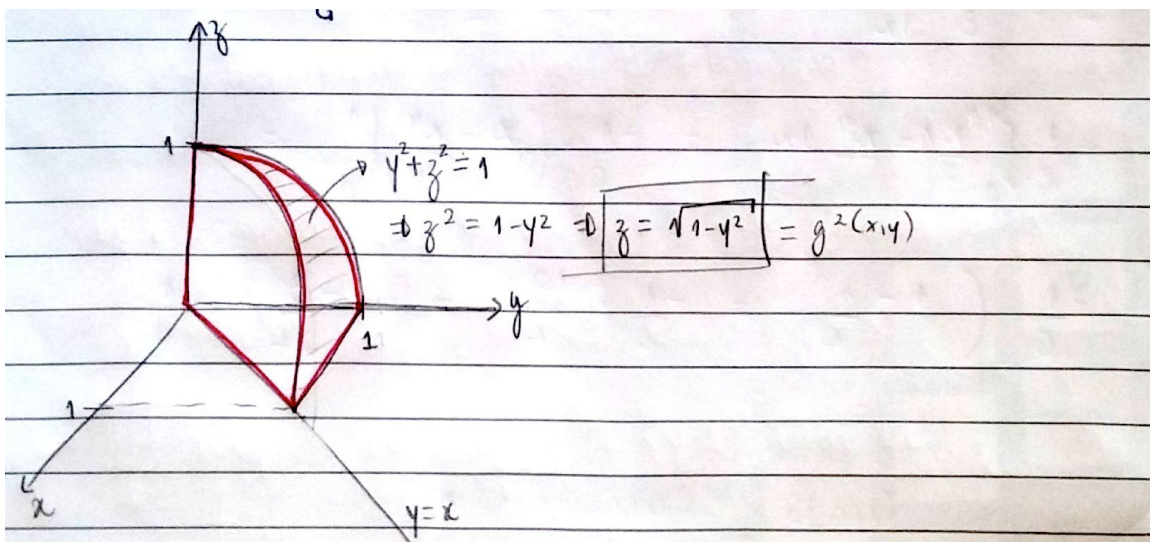 z
1
y² + z² = 1
⇒ z² = 1 - y² ⇒ z = √1-y² = g²(x,y)
y
1
1
x
y = x